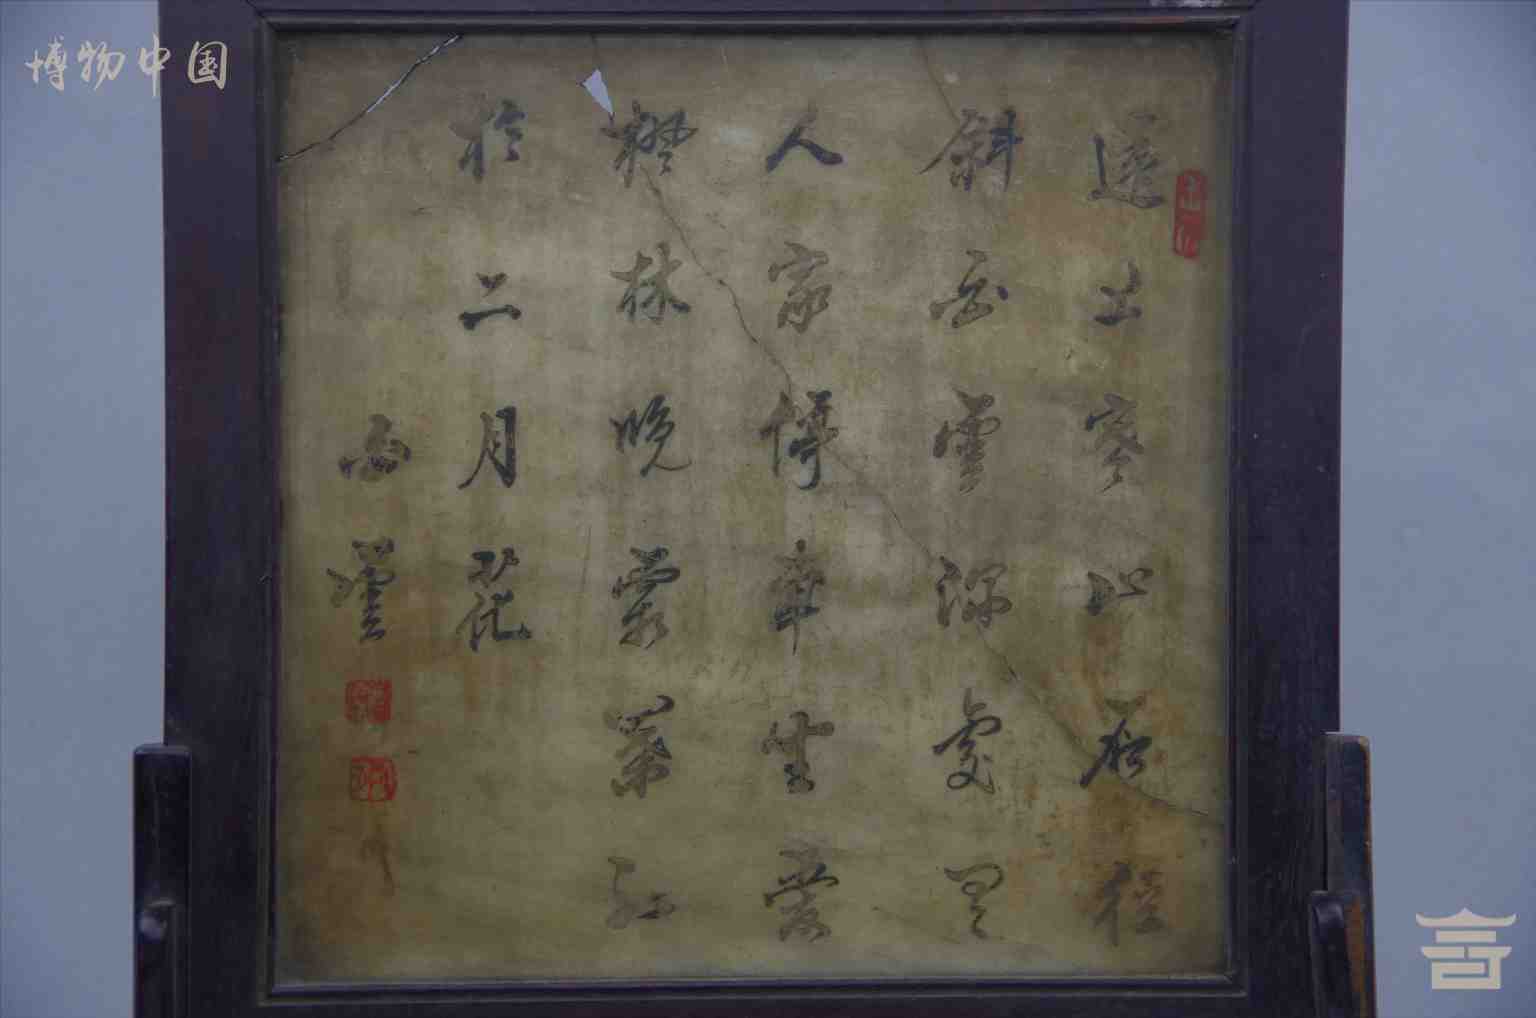 博物中国
遠上寒山石徑
斜白雲深處
人家停車坐愛
楓林晚霜葉紅
於二月花